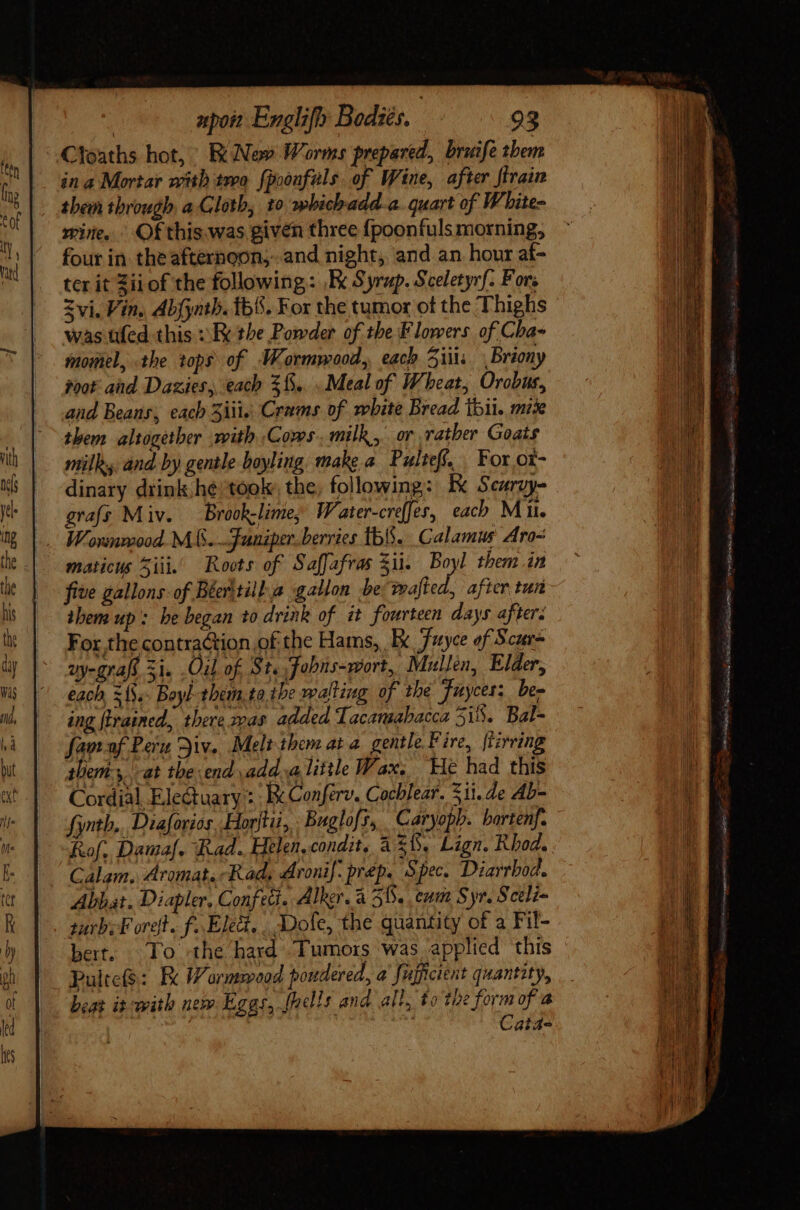 upon Engliſh Bodies. 93
Cloaths hot, ℞ New Worms prepared, bruiſe them
in a Mortar with two ſpoonfuls of Wine, after ſtrain
them through a Cloth, to which add a quart of White-
wine. Of this was given three ſpoonfuls morning,
four in the afternoon, and night, and an hour af-
ter it ℥ii of the following: ℞ Syrup. Sceletyrſ. For.
℥vi. Vin. Abſynth. ℔ß. For the tumor of the Thighs
was uſed this: ℞ the Powder of the Flowers of Cha-
momel, the tops of Wormwood, each ℥iii. Briony
root and Dazies, each ℥ß. Meal of Wheat, Orobus,
and Beans, each ℥iii. Crums of white Bread ℔ii. mix
them altogether with Cows milk, or rather Goats
milk, and by gentle boyling make a Pulteſs. For or-
dinary drink he took the following: ℞ Scurvy-
graſs Miv. Brook-lime, Water-creſſes, each Mii.
Wormwood Mß. Juniper berries ℔ß. Calamus Aro-
maticus ℥iii. Roots of Saſſafras ℥ii. Boyl them in
five gallons of Beer till a gallon be waſted, after tun
them up: he began to drink of it fourteen days after:
For the contraction of the Hams, ℞ Juyce of Scur-
vy-graſs ℥i. Oil of St. Johns-wort, Mullen, Elder,
each ℥ß. Boyl them to the waſting of the Juyces: be-
ing ſtrained, there was added Tacamahacca ℥iß. Bal-
ſam of Peru ʒiv. Melt them at a gentle Fire, ſtirring
them, at the end add a little Wax. He had this
Cordial Electuary: ℞ Conſerv. Cochlear. ℥ii. de Ab-
ſynth. Diaforios Horſtii, Bugloſs, Caryoph. hortenſ.
Roſ. Damaſ. Rad. Helen. condit. a ℥ß. Lign. Rhod.
Calam. Aromat. Rad. Aroniſ. præp. Spec. Diarrhod.
Abbat. Diapler. Confect. Alker. a ℥ß. cum Syr. Sceli-
turb. Foreſt. f. Elect. Doſe, the quantity of a Fil-
bert. To the hard Tumors was applied this
Pulteſs: ℞ Wormwood poudered, a ſufficient quantity,
beat it with new Eggs, ſhells and all, to the form of a
Cata-